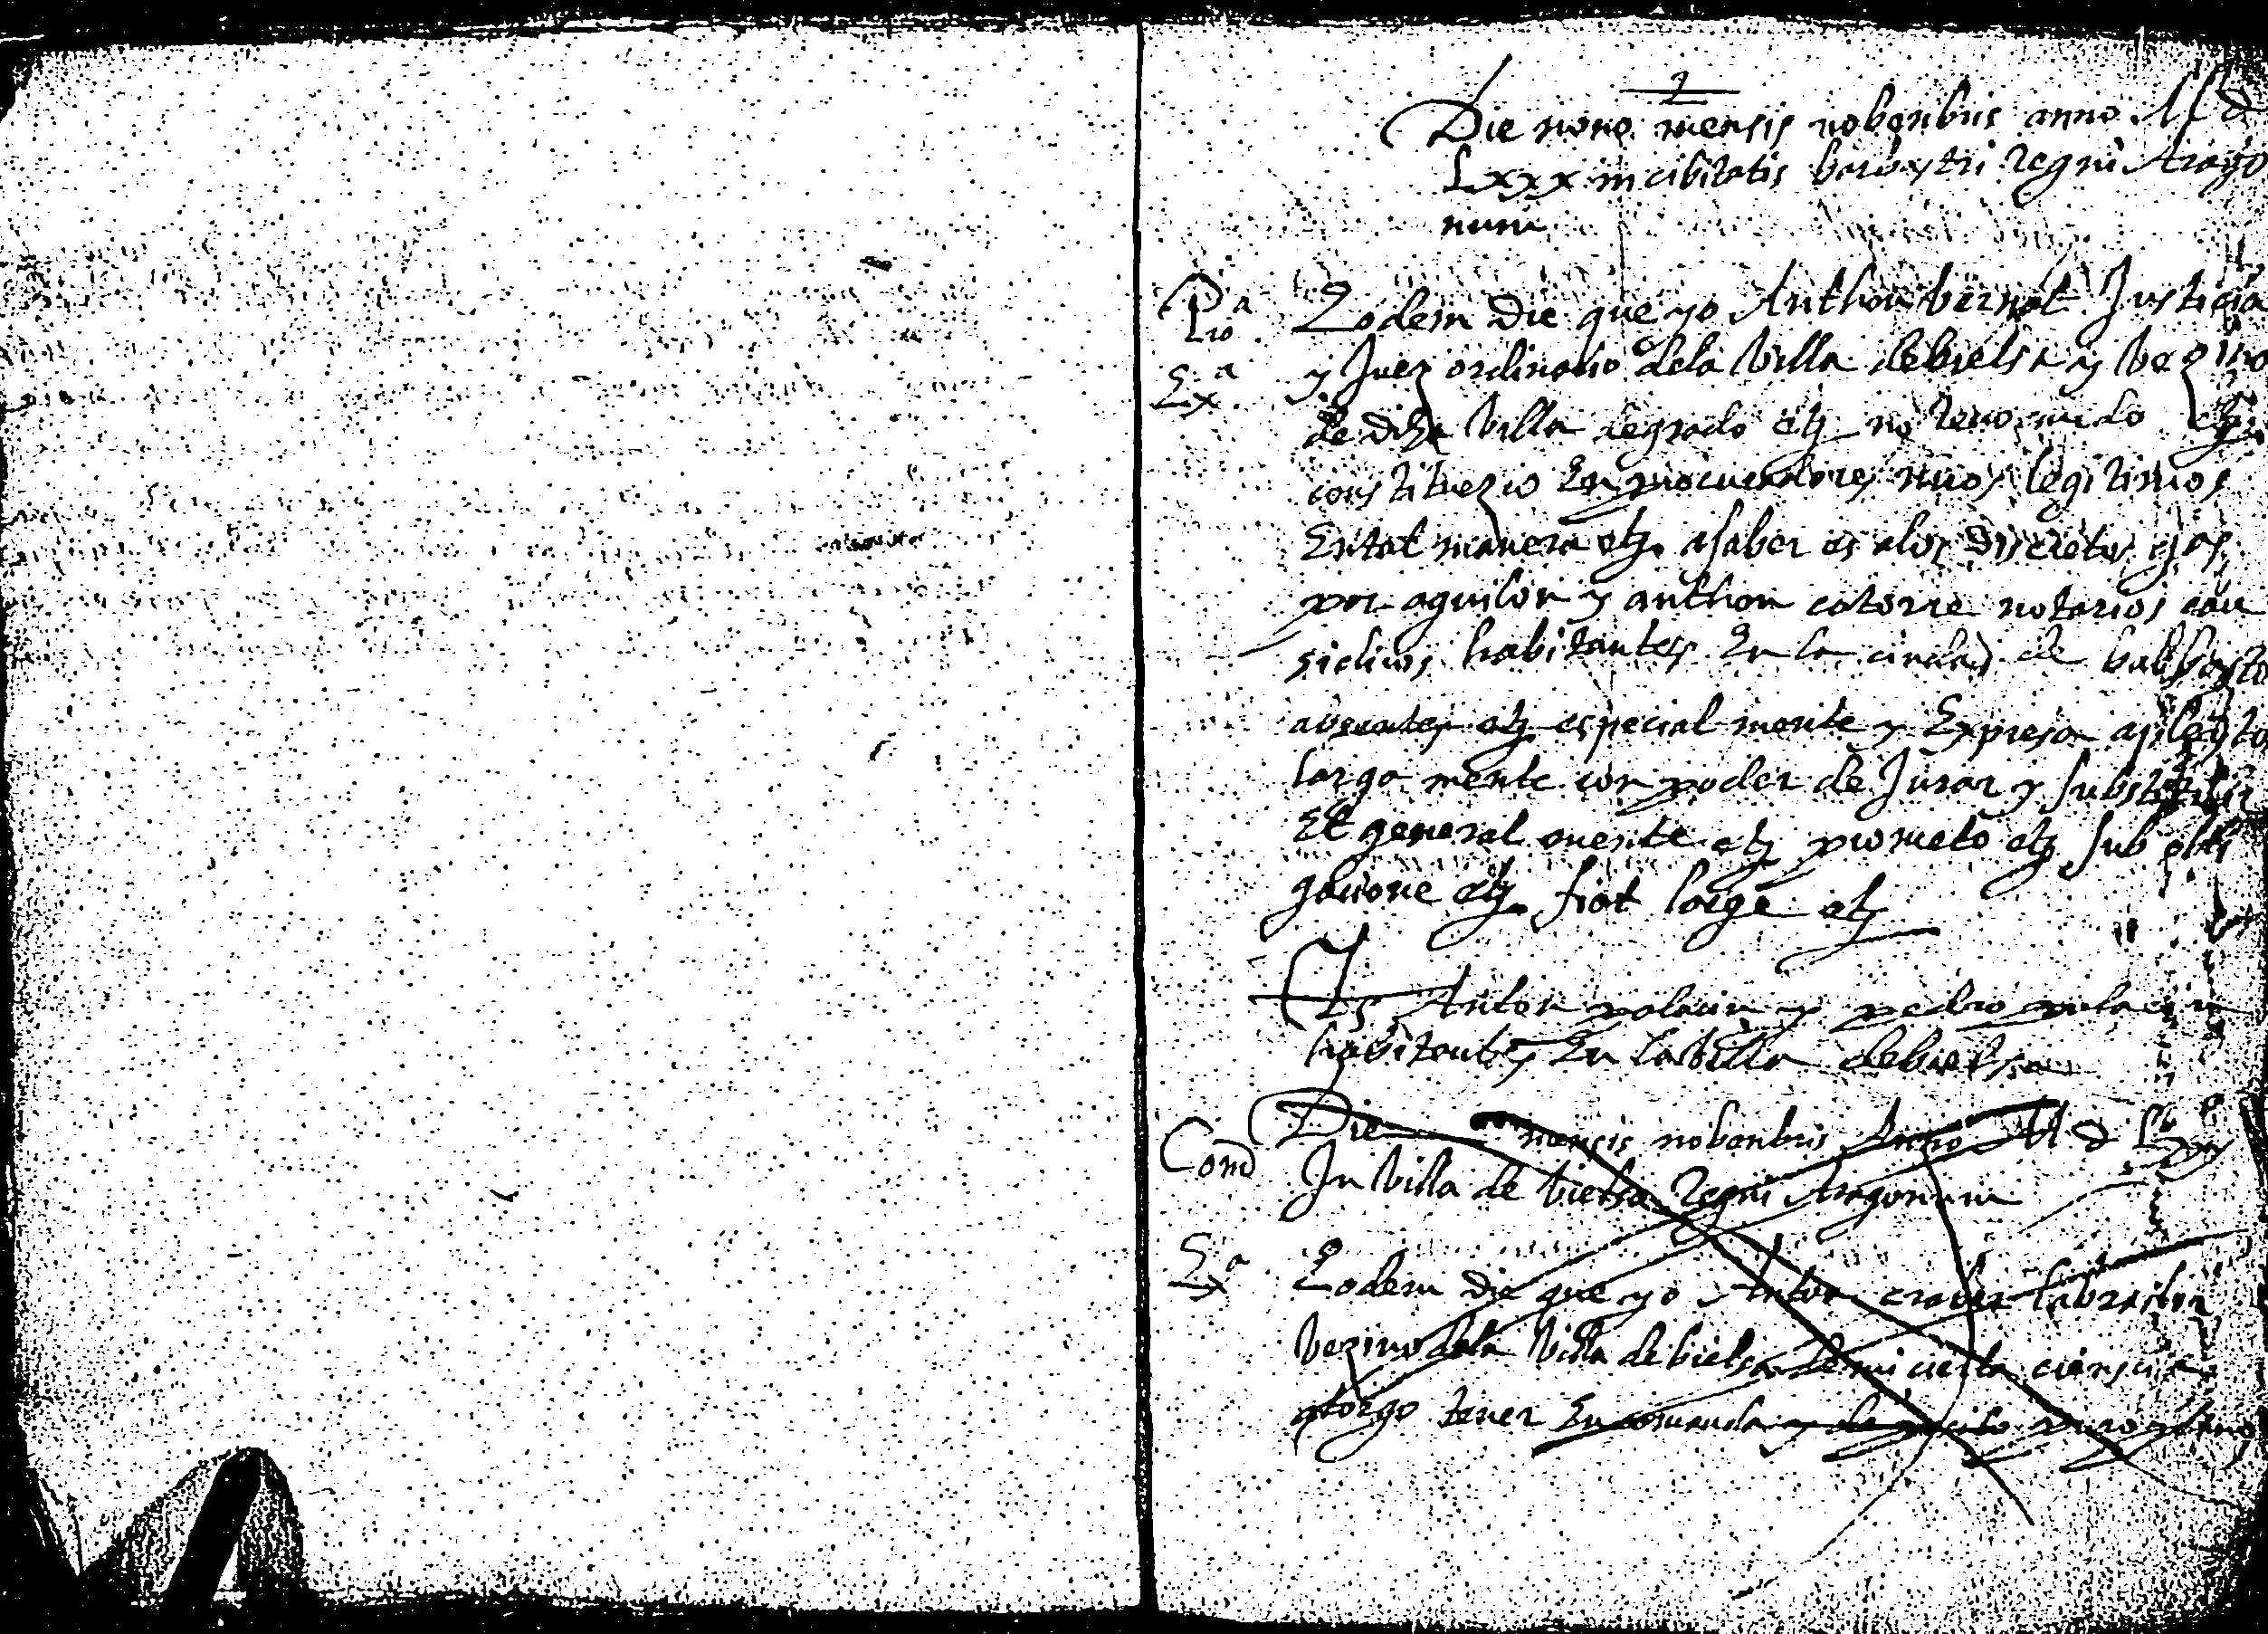 Die nono mensis nobenbris anno M d
Lxxx in cibitatis barbastri Regni Arago
num
Eodem Die que yo Anthon bernat Justicia
y Juez ordinario dela Villa debielsa y Vezino
de dicha Villa de grado etz no Revocando etz
constituezco En procuradores mios legitimos
En tal manera etz. asaber es alos discretos
aguilon y anthon catorre notarios cau
sidicos habitantes En la ciudad de barbastro
absentes etz especial mente y Expresa apleytos
larga mente con poder de Jurar y substituir
Et general mente etz prometo etz sub obli
gacione etz. fiat large etz
Ts Anton palacin y pedro palacin
habitantes En la Villa debielsa
Com Die mensis nobenbris Anno M d Lxxx
In Villa de bielsa Regni Aragonum
Eodem die que yo Anton labrador
Vezino dela Villa de bielsa de mi cierta ciencia
atorgo tener En comanda y deposito puro